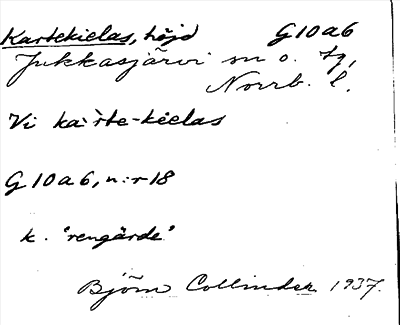 Kartekielas, höjd G10a6
Jukkasjärvi sn o. tg,
Norrb. l.
Vi ka·r̀te-kielas
G10a6, n:r 18
k. "rengärde"
Björn Collinder 1937.